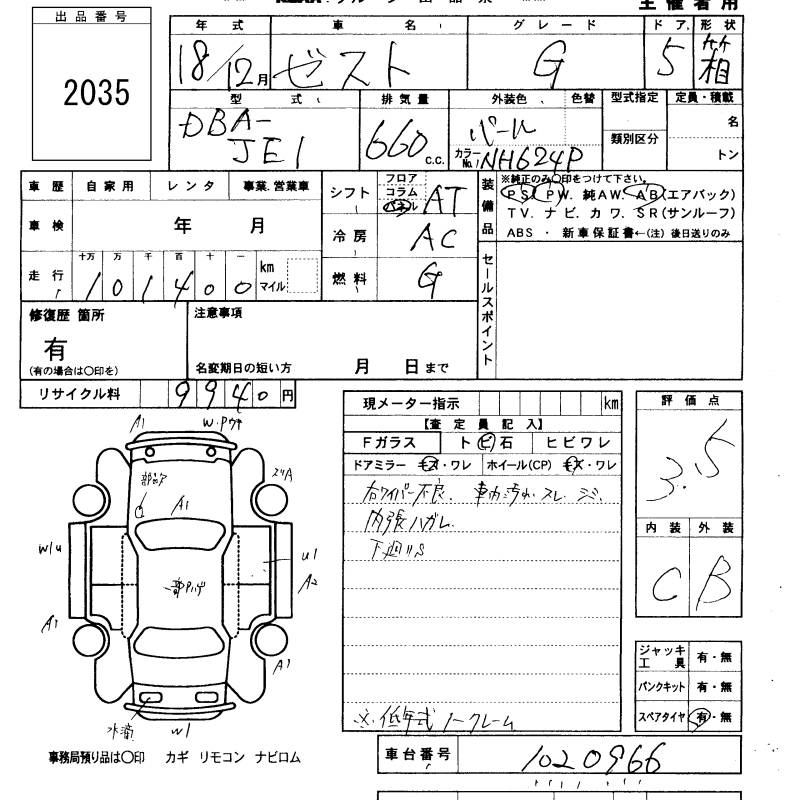 出品番号
2035
主催者用
年式 車名 グレード ドア 形状
18/12月 ゼスト G 5 箱
型式 排気量 外装色 色替 型式指定 定員・積載
DBA-JE1 660c.c. パール カラーNo. NH624P 類別区分 名 トン
車歴 自家用 レンタ 事業.営業車
車検 年 月
走行 十万 万 千 百 十 一
101400 km マイル
シフト フロア コラム パネル AT
冷房 AC
燃料 G
装備品
※純正のみ〇印をつけて下さい。
PS. PW. 純AW. AB(エアバック)
TV. ナビ. カワ. SR(サンルーフ)
ABS ・ 新車保証書←(注) 後日送りのみ
セールスポイント
修復歴 箇所
有
(有の場合は〇印を)
注意事項
名変期日の短い方 月 日まで
リサイクル料 9940円
現メーター指示 km
【査定員記入】
Fガラス トビ石 ヒビワレ
ドアミラー キズ・ワレ ホイール(CP) キズ・ワレ
右ワイパー不良. 車内汚れ スレ
内張ハガレ
下廻りS
※低年式ノークレーム
評価点
3.5
内装 外装
C B
ジャッキ工具 有・無
パンクキット 有・無
スペアタイヤ 有・無
A1 W.Pウキ
A1
W/U U1
A2
A1 A1
W1
事務局預り品は〇印 カギ リモコン ナビロム
車台番号 1020966